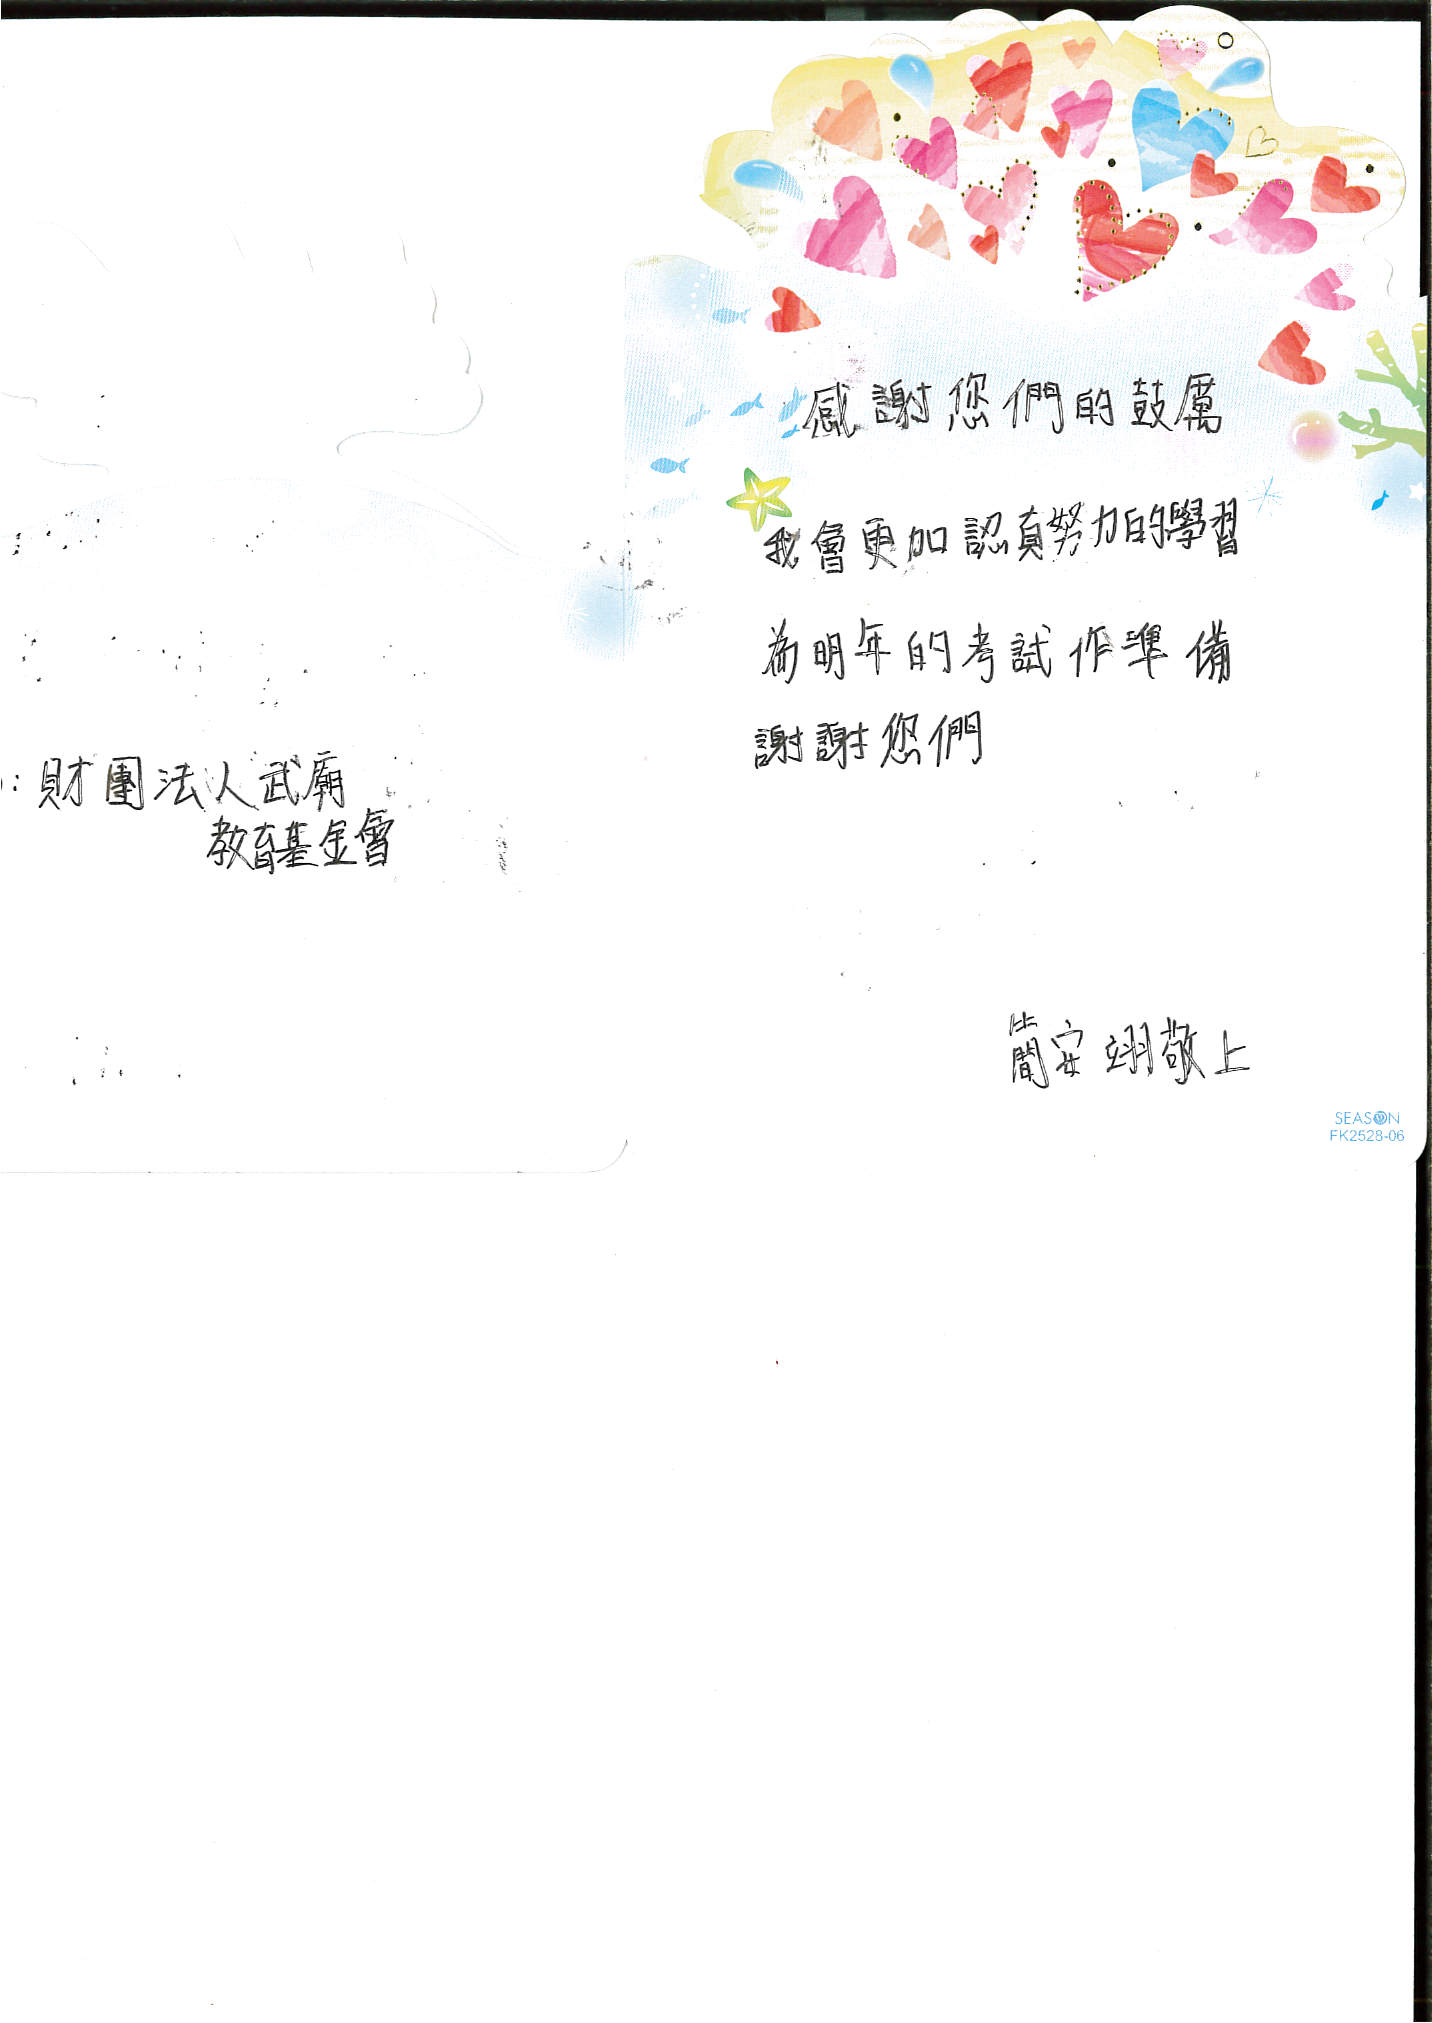 ：財團法人武廟
教育基金會
感謝您們的鼓厲
我會更加認真努力的學習
為明年的考試作準備
謝謝您們
簡安翊敬上
SEASON
FK2528-06